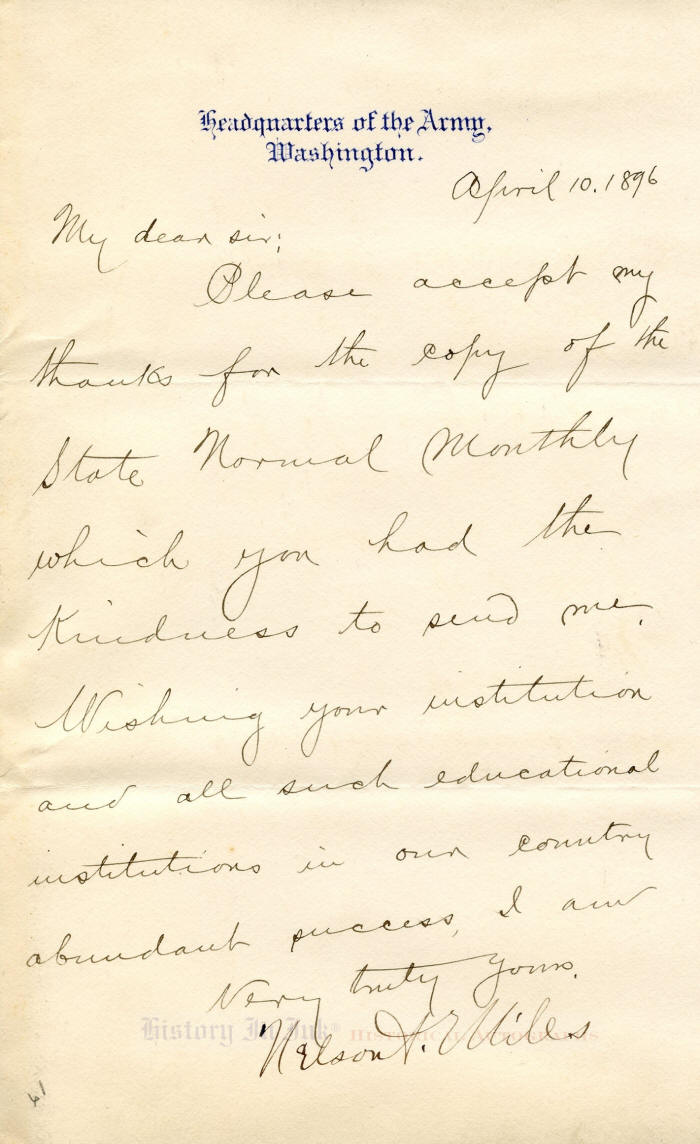 Headquarters of the Army,
Washington.
April 10. 1896
My dear sir;
Please accept my
thanks for the copy of the
State Normal Monthly
which you had the
Kindness to send me.
Wishing your institution
and all such educational
institutions in our country
abundant success, I am
Very truly yours.
Nelson A. Miles
History In Ink® Historical Autographs
61